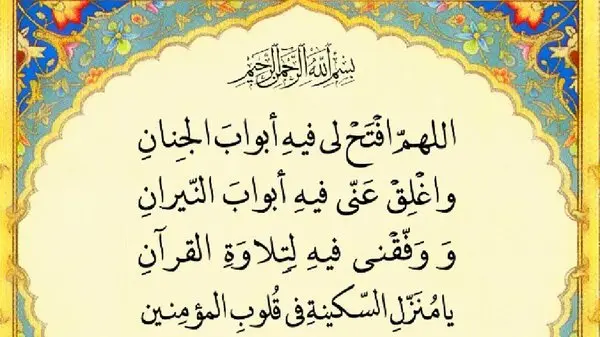 بِسْمِ اللَّهِ الرَّحْمَنِ الرَّحِيمِ
اللهمّ افْتَحْ لی فیهِ أبوابَ الجِنانِ
واغْلِقْ عَنّی فیهِ أبوابَ النّیرانِ
و وَفّقْنی فیهِ لِتِلاوَةِ القرآنِ
یا مُنَزّلِ السّکینةِ فی قُلوبِ المؤمِنین